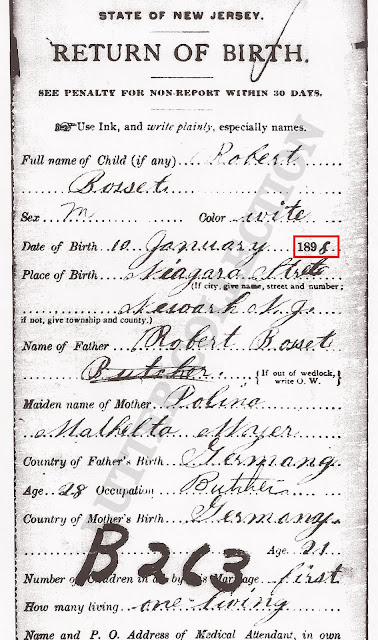 STATE OF NEW JERSEY.
RETURN OF BIRTH.
SEE PENALTY FOR NON-REPORT WITHIN 30 DAYS.
Use Ink, and write plainly, especially names.
Full name of Child (if any) Robert
Bosset
Sex M Color wite
Date of Birth 10 January 1898
Place of Birth Niagara
(If city, give name, street and number;
Newark N.J.
if not, give township and county.)
Name of Father Robert Bosset
Butcher { If out of wedlock, write O. W. }
Maiden name of Mother Polina
Mathelta Myer
Country of Father's Birth Germang
Age 28 Occupation Butcher
Country of Mother's Birth Germony.
Age 21
B263
Number of Children in by Marriage first
How many living one living
Name and P. O. Address of Medical Attendant, in own